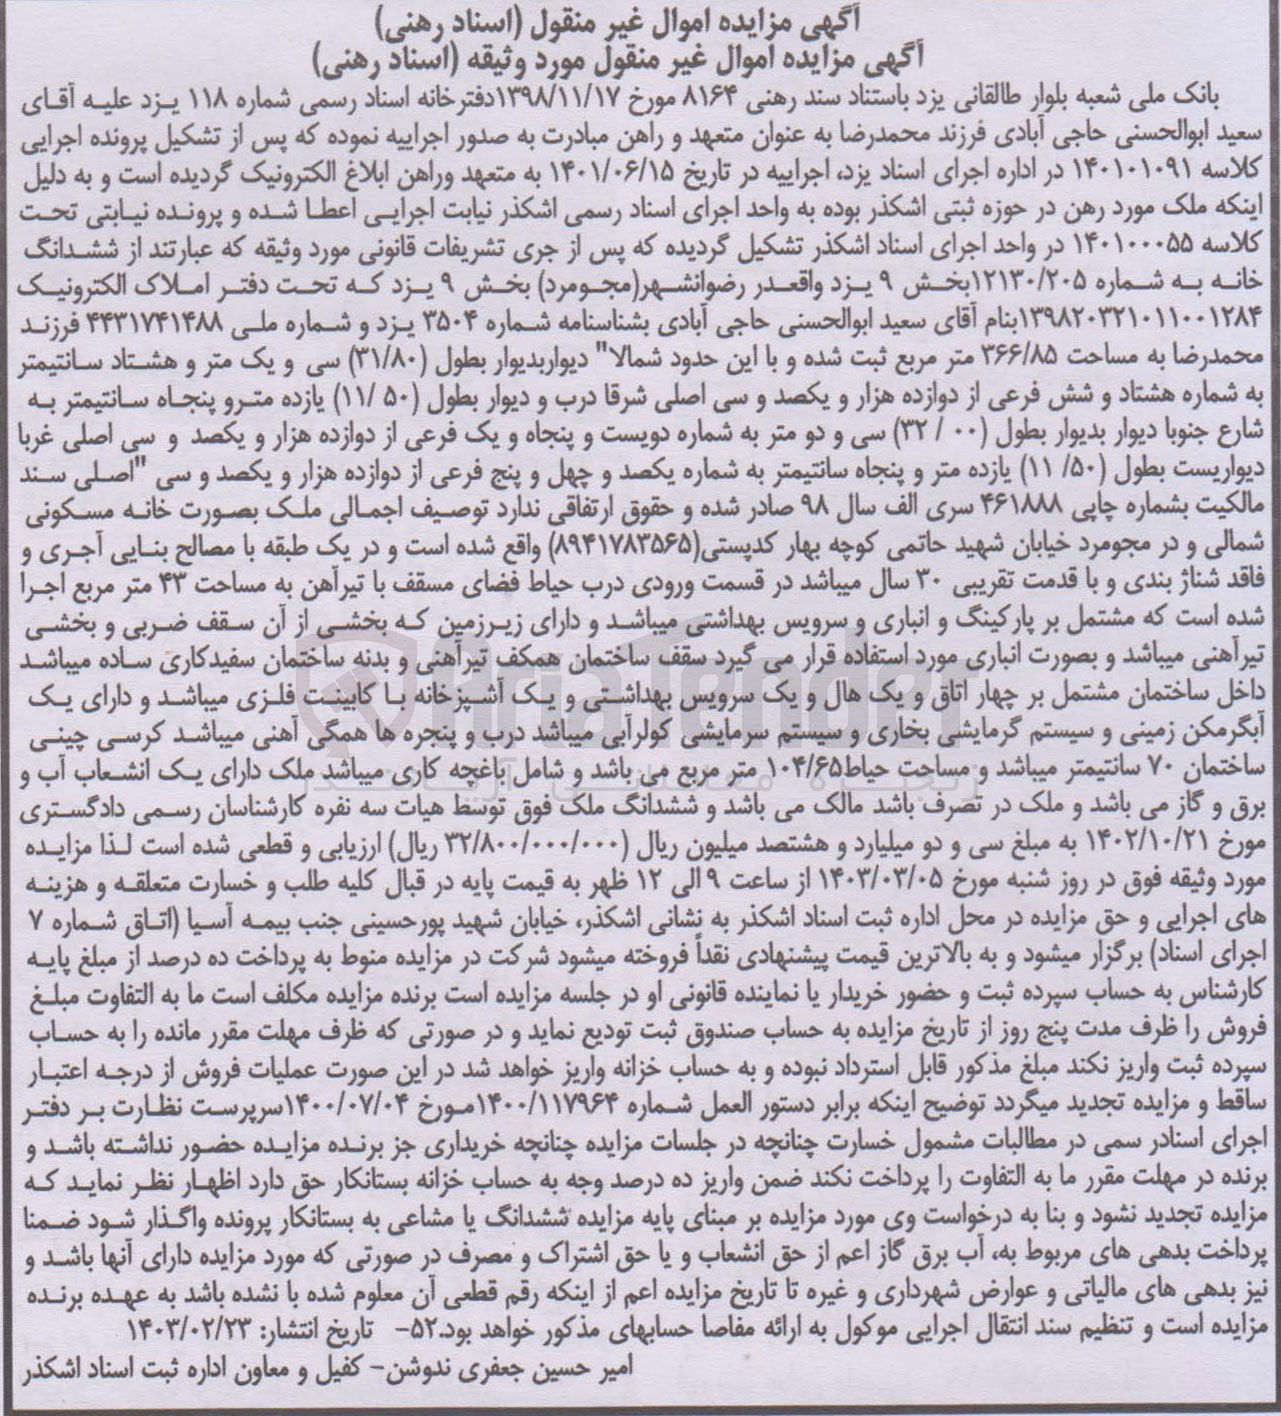 آگهی مزایده اموال غیر منقول (اسناد رهنی)
آگهی مزایده اموال غیر منقول مورد وثیقه (اسناد رهنی)
بانک ملی شعبه بلوار طالقانی یزد باستناد سند رهنی ۸۱۶۴ مورخ ۱۳۹۸/۱۱/۱۷دفترخانه اسناد رسمی شماره ۱۱۸ یزد علیه آقای
سعید ابوالحسنی حاجی آبادی فرزند محمدرضا به عنوان متعهد و راهن مبادرت به صدور اجراییه نموده که پس از تشکیل پرونده اجرایی
کلاسه ۱۴۰۱۰۱۰۹۱ در اداره اجرای اسناد یزد، اجراییه در تاریخ ۱۴۰۱/۰۶/۱۵ به متعهد وراهن ابلاغ الکترونیک گردیده است و به دلیل
اینکه ملک مورد رهن در حوزه ثبتی اشکذر بوده به واحد اجرای اسناد رسمی اشکذر نیابت اجرایی اعطا شده و پرونده نیابتی تحت
کلاسه ۱۴۰۱۰۰۰۵۵ در واحد اجرای اسناد اشکذر تشکیل گردیده که پس از جری تشریفات قانونی مورد وثیقه که عبارتند از ششدانگ
خانه به شماره ۱۲۱۳۰/۲۰۵بخش ۹ یزد واقعدر رضوانشهر(مجومرد) بخش ۹ یزد که تحت دفتر املاک الکترونیک
۱۳۹۸۲۰۳۲۱۰۱۱۰۰۱۲۸۴بنام آقای سعید ابوالحسنی حاجی آبادی بشناسنامه شماره ۳۵۰۴ یزد و شماره ملی ۴۴۳۱۷۴۱۴۸۸ فرزند
محمدرضا به مساحت ۳۶۶/۸۵ متر مربع ثبت شده و با این حدود شمالا" دیواربدیوار بطول (۳۱/۸۰) سی و یک متر و هشتاد سانتیمتر
به شماره هشتاد و شش فرعی از دوازده هزار و یکصد و سی اصلی شرقا درب و دیوار بطول (۵۰ /۱۱) یازده مترو پنجاه سانتیمتر به
شارع جنوبا دیوار بدیوار بطول (۰۰ / ۳۲) سی و دو متر به شماره دویست و پنجاه و یک فرعی از دوازده هزار و یکصد و سی اصلی غربا
دیواریست بطول (۵۰/ ۱۱) یازده متر و پنجاه سانتیمتر به شماره یکصد و چهل و پنج فرعی از دوازده هزار و یکصد و سی "اصلی سند
مالکیت بشماره چاپی ۴۶۱۸۸۸ سری الف سال ۹۸ صادر شده و حقوق ارتفاقی ندارد توصیف اجمالی ملک بصورت خانه مسکونی
شمالی و در مجومرد خیابان شهید حاتمی کوچه بهار کدپستی(۸۹۴۱۷۸۳۵۶۵) واقع شده است و در یک طبقه با مصالح بنایی آجری و
فاقد شناژ بندی و با قدمت تقریبی ۳۰ سال میباشد در قسمت ورودی درب حیاط فضای مسقف با تیرآهن به مساحت ۴۳ متر مربع اجرا
شده است که مشتمل بر پارکینگ و انباری و سرویس بهداشتی میباشد و دارای زیرزمین که بخشی از آن سقف ضربی و بخشی
تیرآهنی میباشد و بصورت انباری مورد استفاده قرار می گیرد سقف ساختمان همکف تیرآهنی و بدنه ساختمان سفیدکاری ساده میباشد
داخل ساختمان مشتمل بر چهار اتاق و یک هال و یک سرویس بهداشتی و یک آشپزخانه با کابینت فلزی میباشد و دارای یک
آبگرمکن زمینی و سیستم گرمایشی بخاری و سیستم سرمایشی کولرآبی میباشد درب و پنجره ها همگی آهنی میباشد کرسی چینی
ساختمان ۷۰ سانتیمتر میباشد و مساحت حیاط۱۰۴/۶۵ متر مربع می باشد و شامل باغچه کاری میباشد ملک دارای یک انشعاب آب و
برق و گاز می باشد و ملک در تصرف باشد مالک می باشد و ششدانگ ملک فوق توسط هیات سه نفره کارشناسان رسمی دادگستری
مورخ ۱۴۰۲/۱۰/۲۱ به مبلغ سی و دو میلیارد و هشتصد میلیون ریال (۳۲/۸۰۰/۰۰۰/۰۰۰ ریال) ارزیابی و قطعی شده است لذا مزایده
مورد وثیقه فوق در روز شنبه مورخ ۱۴۰۳/۰۳/۰۵ از ساعت ۹ الی ۱۲ ظهر به قیمت پایه در قبال کلیه طلب و خسارت متعلقه و هزینه
های اجرایی و حق مزایده در محل اداره ثبت اسناد اشکذر به نشانی اشکذر، خیابان شهید پورحسینی جنب بیمه آسیا (اتاق شماره ۷
اجرای اسناد) برگزار میشود و به بالاترین قیمت پیشنهادی نقداً فروخته میشود شرکت در مزایده منوط به پرداخت ده درصد از مبلغ پایه
کارشناس به حساب سپرده ثبت و حضور خریدار یا نماینده قانونی او در جلسه مزایده است برنده مزایده مکلف است ما به التفاوت مبلغ
فروش را ظرف مدت پنج روز از تاریخ مزایده به حساب صندوق ثبت تودیع نماید و در صورتی که ظرف مهلت مقرر مانده را به حساب
سپرده ثبت واریز نکند مبلغ مذکور قابل استرداد نبوده و به حساب خزانه واریز خواهد شد در این صورت عملیات فروش از درجه اعتبار
ساقط و مزایده تجدید میگردد توضیح اینکه برابر دستور العمل شماره ۱۴۰۰/۱۱۷۹۶۴مورخ ۱۴۰۰/۰۷/۰۴سرپرست نظارت بر دفتر
اجرای اسنادر سمی در مطالبات مشمول خسارت چنانچه در جلسات مزایده چنانچه خریداری جز برنده مزایده حضور نداشته باشد و
برنده در مهلت مقرر ما به التفاوت را پرداخت نکند ضمن واریز ده درصد وجه به حساب خزانه بستانکار حق دارد اظهار نظر نماید که
مزایده تجدید نشود و بنا به درخواست وی مورد مزایده بر مبنای پایه مزایده ششدانگ یا مشاعی به بستانکار پرونده واگذار شود ضمنا
پرداخت بدهی های مربوط به، آب برق گاز اعم از حق انشعاب و یا حق اشتراک و مصرف در صورتی که مورد مزایده دارای آنها باشد و
نیز بدهی های مالیاتی و عوارض شهرداری و غیره تا تاریخ مزایده اعم از اینکه رقم قطعی آن معلوم شده با نشده باشد به عهده برنده
مزایده است و تنظیم سند انتقال اجرایی موکول به ارائه مفاصا حسابهای مذکور خواهد بود.۵۲- تاریخ انتشار: ۱۴۰۳/۰۲/۲۳
امیر حسین جعفری ندوشن- کفیل و معاون اداره ثبت اسناد اشکذر
AriaTender